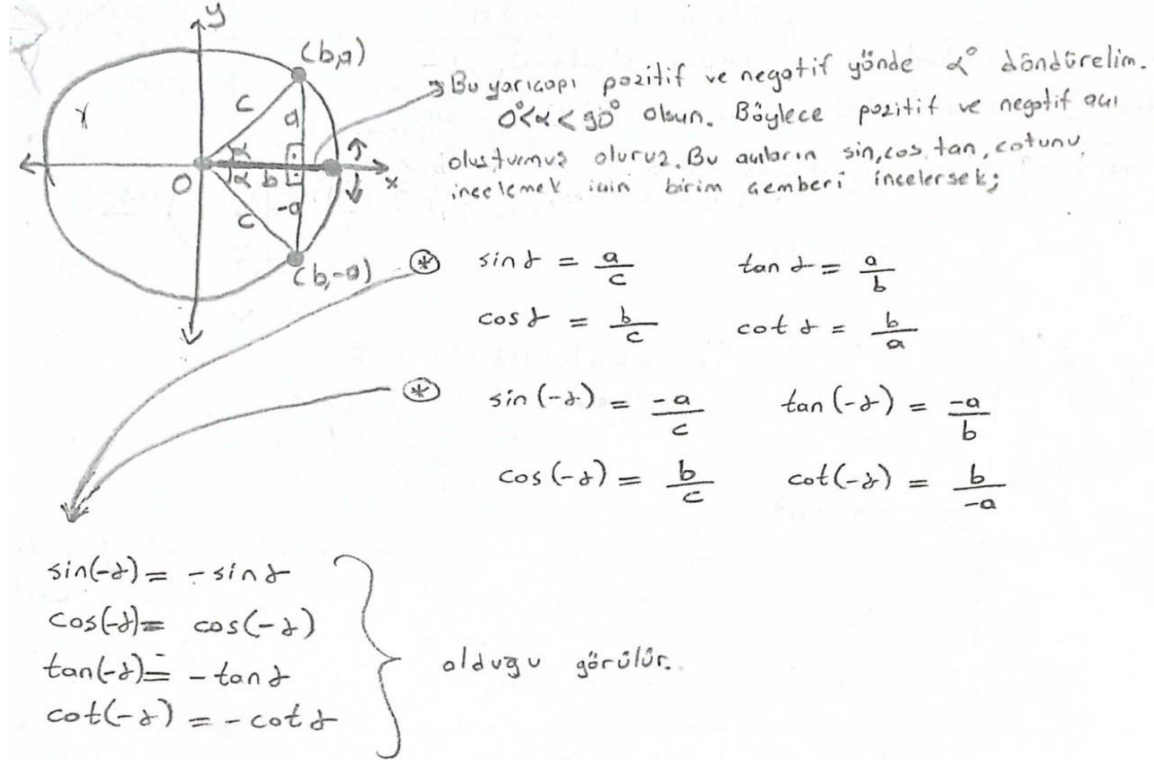 y
(b,a)
γ
c
a
α
α
b
O
x
-a
c
(b,-a)
Bu yarıçapı pozitif ve negatif yönde α° döndürelim.
0°<α<90° olsun. Böylece pozitif ve negatif açı
oluşturmuş oluruz. Bu açıların sin, cos, tan, cotunu
incelemek için birim çemberi incelersek;
* sin α = a/c tan α = a/b
cos α = b/c cot α = b/a
* sin(-α) = -a/c tan(-α) = -a/b
cos(-α) = b/c cot(-α) = b/-a
sin(-α) = -sin α
cos(-α) = cos(-α)
tan(-α) = -tan α
cot(-α) = -cot α
olduğu görülür.